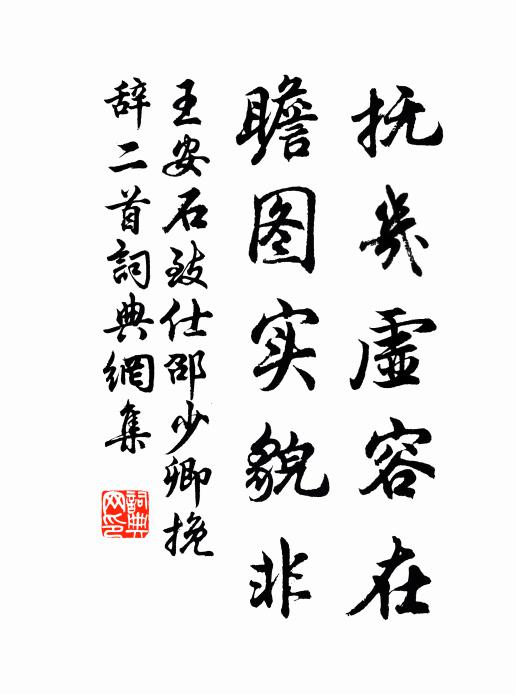 抚几虚容在
瞻图实貌非
王安石致仕邵少卿挽
辞二首詞典網集
詞典网印